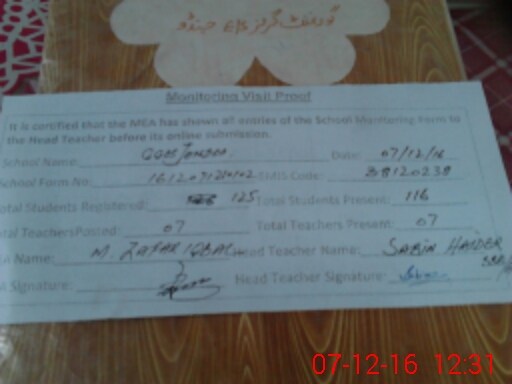 گورنمنٹ گرلز
Monitoring Visit Proof
It is certified that the MEA has shown all entries of the School Monitoring Form to
the Head Teacher before its online submission.
School Name: Date: 07/12/16
School Form No: EMIS Code: 38120238
Total Students Registered: 125 Total Students Present: 116
Total Teachers Posted: 07 Total Teachers Present: 07
Name: M. ZAFAR IQBAL Head Teacher Name: SABIN HAIDER
Signature: Head Teacher Signature:
07-12-16 12:31